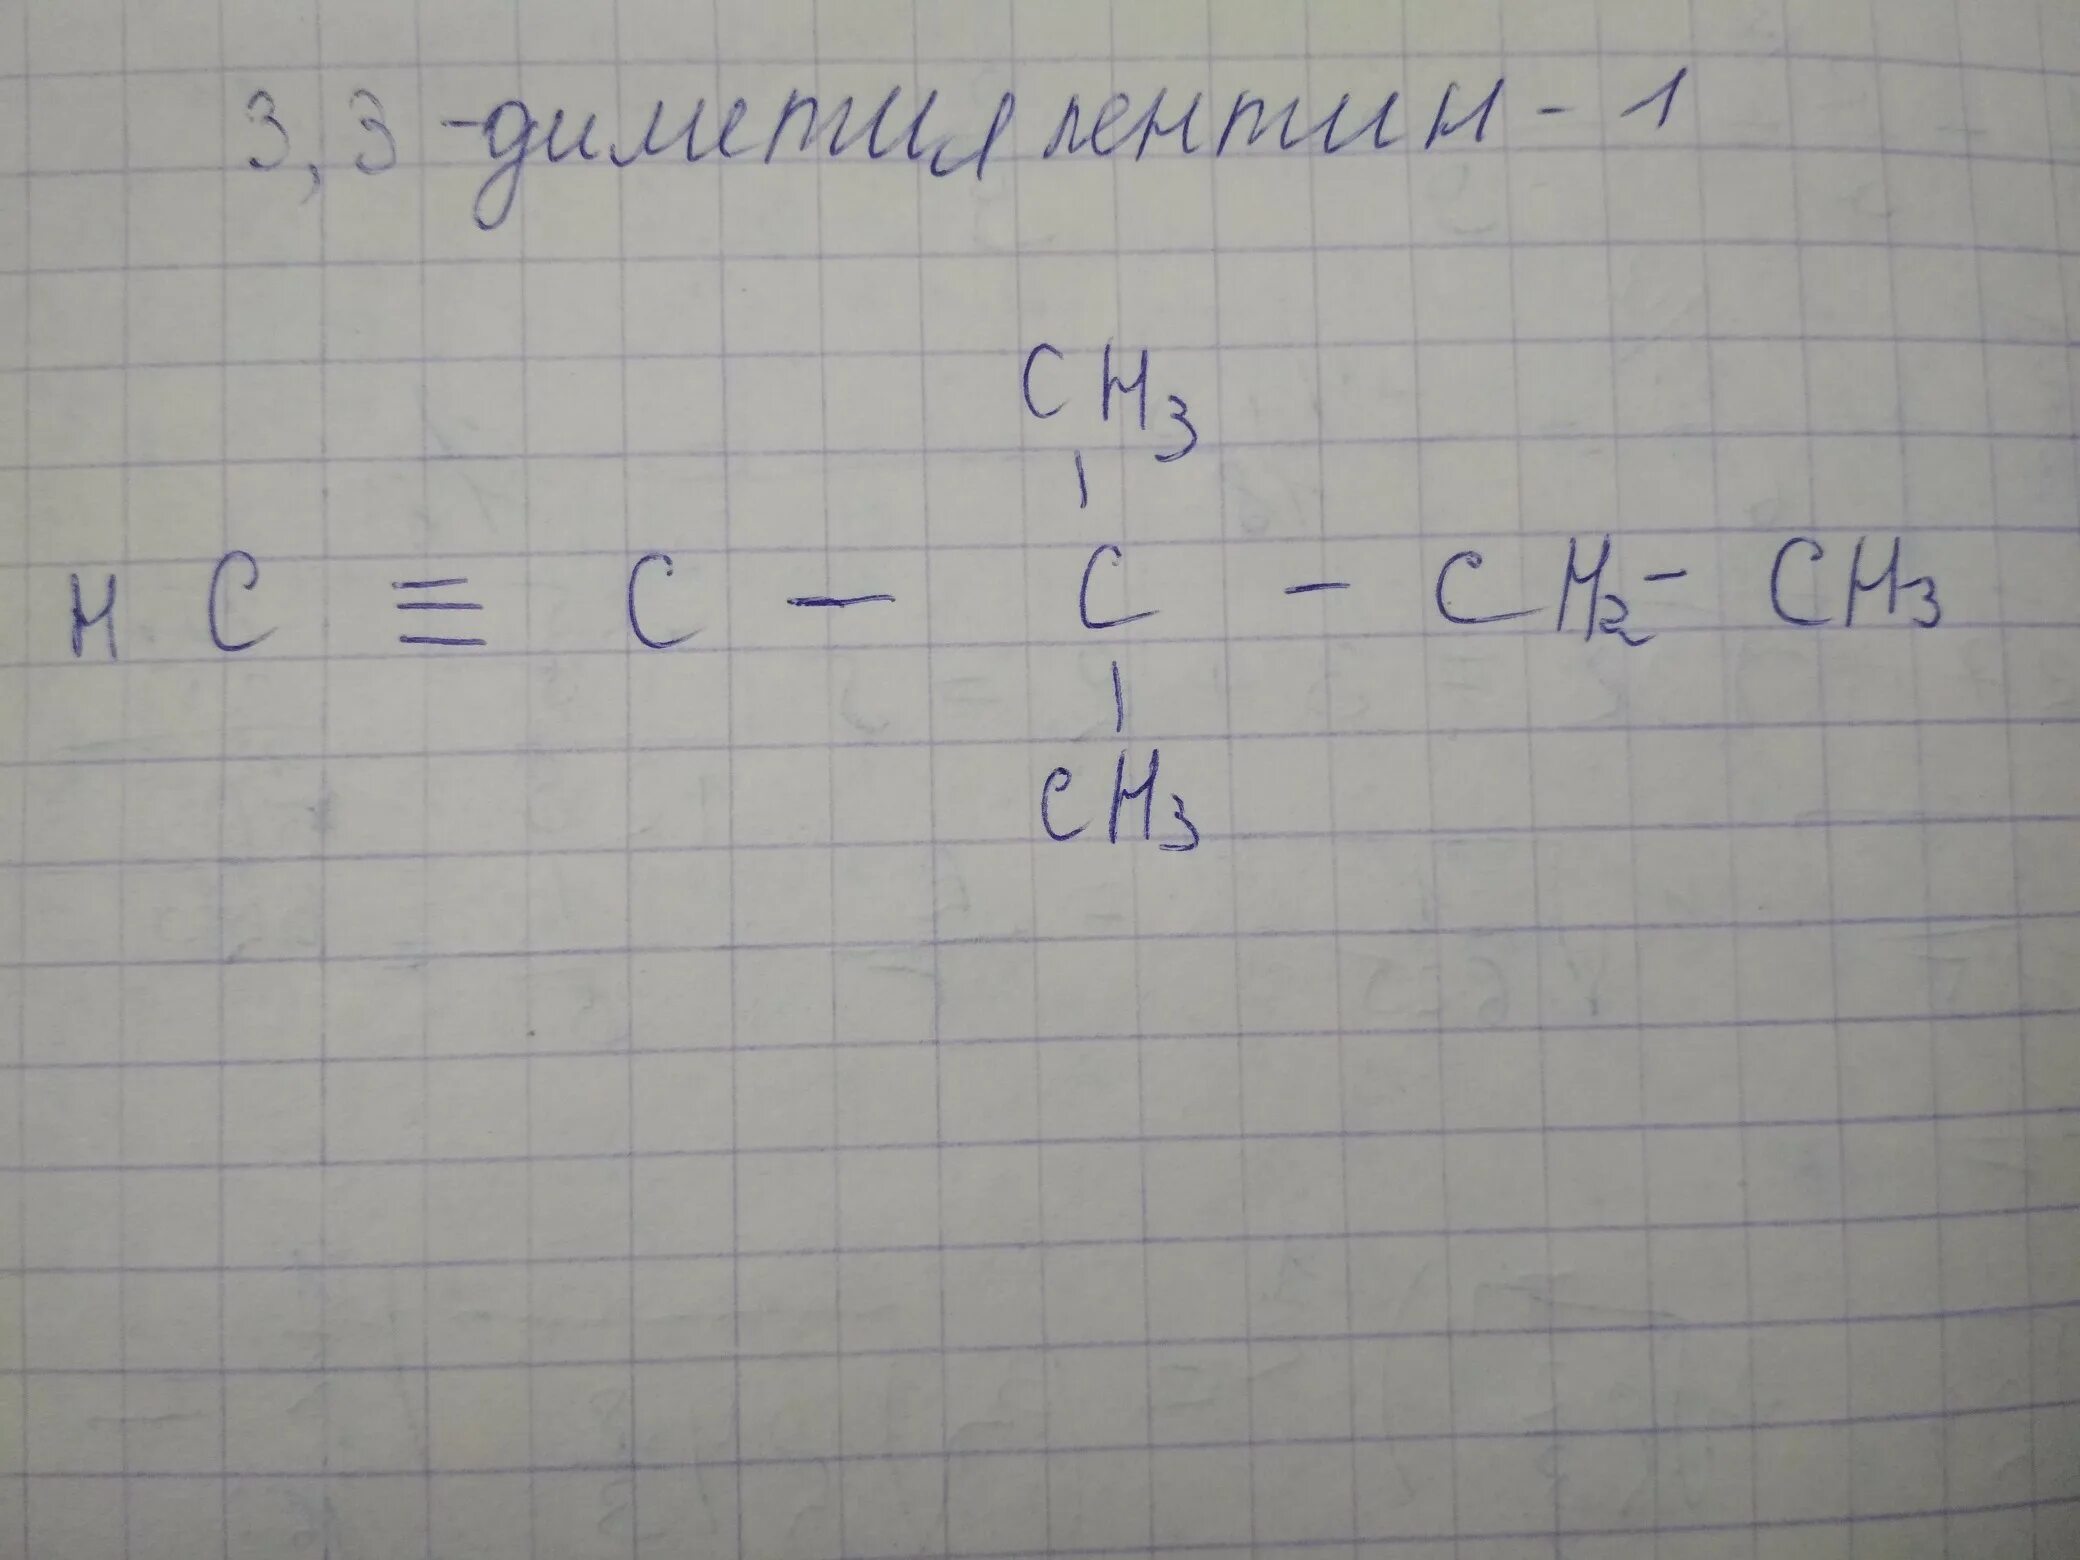 3,3-диметил пентин-1
CH3
HC ≡ C - C - CH2 - CH3
CH3